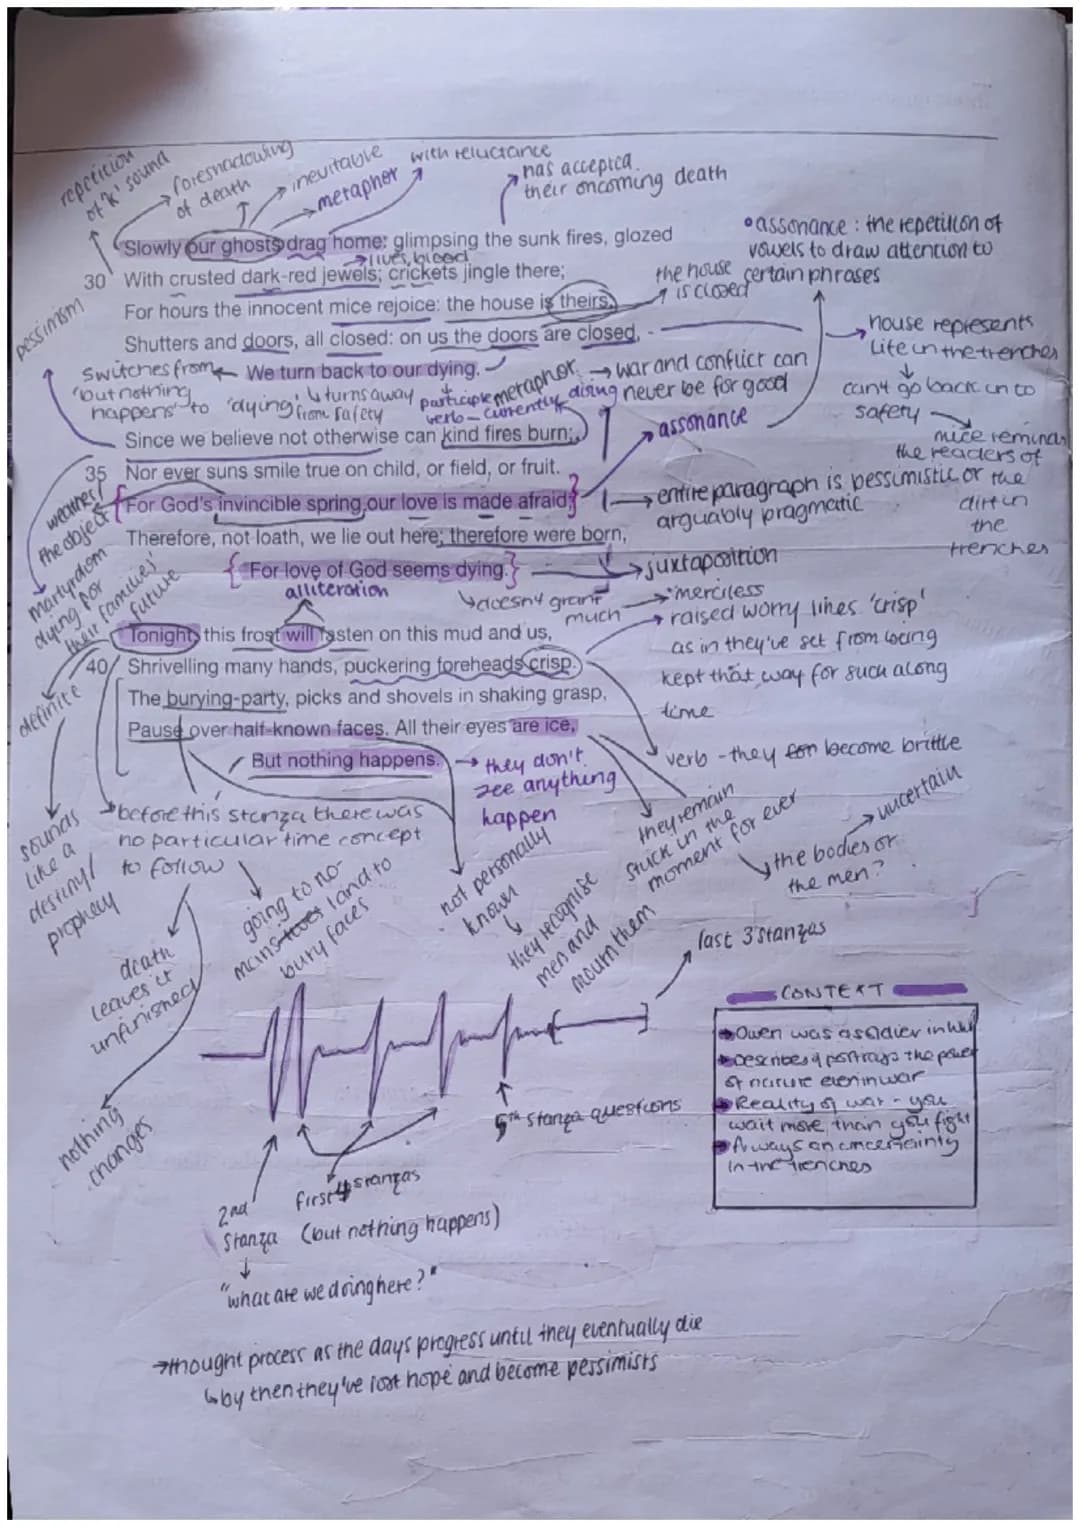 repetition
of 'k' sound
foreshadowing
of death
inevitable
metaphor
with reluctance
has accepted
their oncoming death
Slowly our ghosts drag home: glimpsing the sunk fires, glozed
lives, blood
30 With crusted dark-red jewels; crickets jingle there;
For hours the innocent mice rejoice: the house is theirs;
Shutters and doors, all closed: on us the doors are closed, -
We turn back to our dying.
• assonance : the repetition of
vowels to draw attention to
certain phrases
the house
is closed
house represents
life in the trenches
can't go back in to
safety
mice remind
the readers of
the
dirt in
the
trenches
pessimism
switches from
'but nothing
happens' to 'dying'
turns away
from safety
participle
verb - currently dying
metaphor
war and conflict can
never be for good
Since we believe not otherwise can kind fires burn;
35 Nor ever suns smile true on child, or field, or fruit.
For God's invincible spring our love is made afraid;
Therefore, not loath, we lie out here; therefore were born,
For love of God seems dying.
assonance
entire paragraph is pessimistic or
arguably pragmatic
weather/
the object
martyrdom
dying for
their families'
future
alliteration
juxtaposition
doesn't grant
much
• merciless
raised worry lines 'crisp'
as in they've set from being
kept that way for such along
time
Tonight, this frost will fasten on this mud and us,
40 Shrivelling many hands, puckering foreheads crisp.
The burying-party, picks and shovels in shaking grasp,
Pause over half-known faces. All their eyes are ice,
But nothing happens.
definite
sounds
like a
destiny/
prophecy
they don't
see anything
happen
verb - they become brittle
they remain
stuck in the
moment for ever
uncertain
the bodies or
the men?
before this stanza there was
no particular time concept
to follow
going to no
mans land to
bury faces
not personally
known
they recognise
men and
mourn them
death
leaves it
unfinished
nothing
changes
last 3 stanzas
5th stanza questions
2nd
stanza
first 4 stanzas
(but nothing happens)
"what are we doing here?"
CONTEXT
Owen was a soldier in WWI
Describes & portrays the power
of nature even in war
Reality of war - you
wait more than you fight
Always an uncertainty
in the trenches
→thought process as the days progress until they eventually die
↳by then they've lost hope and become pessimists